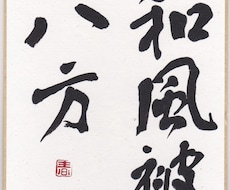 和風被
八方